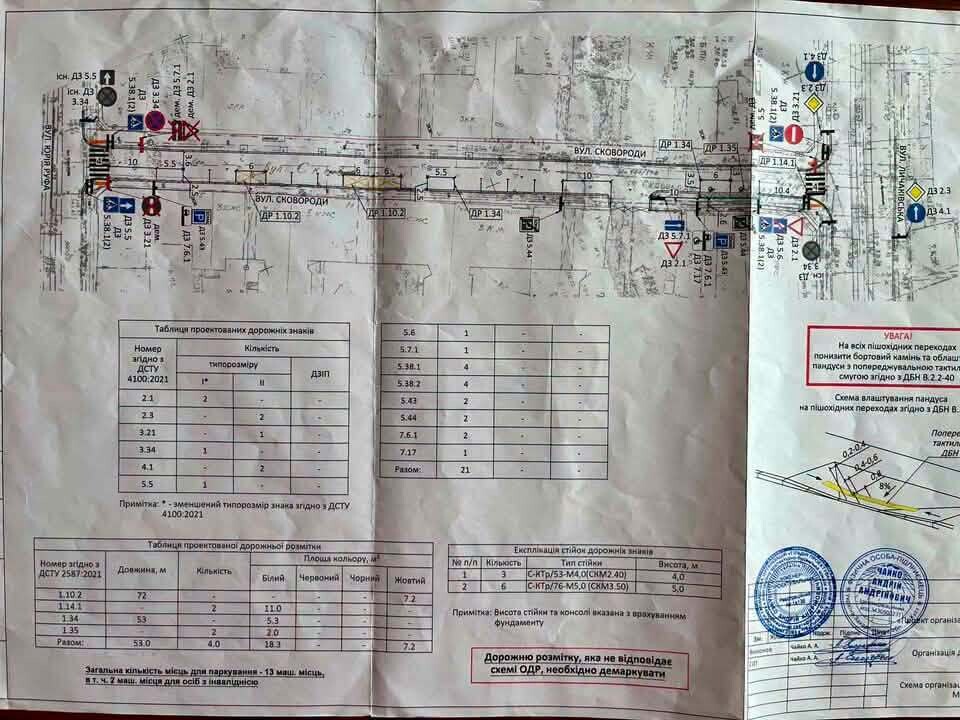 існ. ДЗ 5.5
існ. ДЗ
3.34
ДЗ
5.38.1(2)
ДЗ 3.34
дем. ДЗ 5.7.1
дем. ДЗ 2.1
ВУЛ. ЮРІЯ РУФА
10
5.5
3.6
2.5
6
ВУЛ. СКОВОРОДИ
ДР 1.10.2
6
6
ДР 1.10.2
5.5
ДР 1.34
ВУЛ. СКОВОРОДИ
10
ДР 1.34
ДР 1.35
3.5
6
10.4
ДР 1.14.1
ДЗ
5.38.1(2)
ДЗ 3.21
ДЗ 2.3
ДЗ 4.1
ВУЛ. ЛИЧАКІВСЬКА
ДЗ 2.3
ДЗ 4.1
5.38.1(2)
ДЗ
ДЗ 5.5
дем.
ДЗ 3.21
ДЗ 7.6.1
ДЗ 5.43
ДЗ 5.44
ДЗ 5.7.1
ДЗ 2.1
ДЗ 7.17
ДЗ 7.6.1
ДЗ 5.43
ДЗ 5.44
ДЗ
5.38.1(2)
ДЗ 5.6
ДЗ 2.1
існ. ДЗ
3.34
Таблиця проектованих дорожніх знаків
Номер згідно з ДСТУ 4100:2021 Кількість
типорозміру ДЗІП
І* ІІ
2.1 2 - -
2.3 - 2 -
3.21 - 1 -
3.34 1 - -
4.1 - 2 -
5.5 1 - -
5.6 1 - -
5.7.1 1 - -
5.38.1 4 - -
5.38.2 4 - -
5.43 2 - -
5.44 2 - -
7.6.1 2 - -
7.17 1 - -
Разом: 21 - -
Примітка: * - зменшений типорозмір знака згідно з ДСТУ
4100:2021
УВАГА!
На всіх пішохідних переходах
понизити бортовий камінь та облашт
пандуси з попереджувальною тактил
смугою згідно з ДБН В.2.2-40
Схема влаштування пандуса
на пішохідних переходах згідно з ДБН В.
Попере
тактиль
ДБН
0,2-0,4
0,4-0,6
0,8
8%
Таблиця проектованої дорожньої розмітки
Номер згідно з ДСТУ 2587:2021 Довжина, м Кількість Площа кольору, м²
Білий Червоний Чорний Жовтий
1.10.2 72 - - - - 7.2
1.14.1 - 2 11.0 - - -
1.34 53 - 5.3 - - -
1.35 - 2 2.0 - - -
Разом: 53.0 4.0 18.3 - - 7.2
Загальна кількість місць для паркування - 13 маш. місць,
в т. ч. 2 маш. місця для осіб з інвалідністю
Експлікація стійок дорожніх знаків
№ п/п Кількість Тип стійки Висота, м
1 3 С-КТр/53-М4,0(СКМ2.40) 4,0
2 6 С-КТр/76-М5,0 (СКМ3.50) 5,0
Примітка: Висота стійки та консолі вказана з врахуванням
фундаменту
Дорожню розмітку, яка не відповідає
схемі ОДР, необхідно демаркувати
ФІЗИЧНА ОСОБА-ПІДПРИЄМЕЦЬ
ЧАЙКО
АНДРІЙ
АНДРІЙОВИЧ
Проект організа
Зм.
Підпис
Дата
Виконав
Чайко А. А.
ГІП
Чайко А. А.
Організація д
Схема організа
М